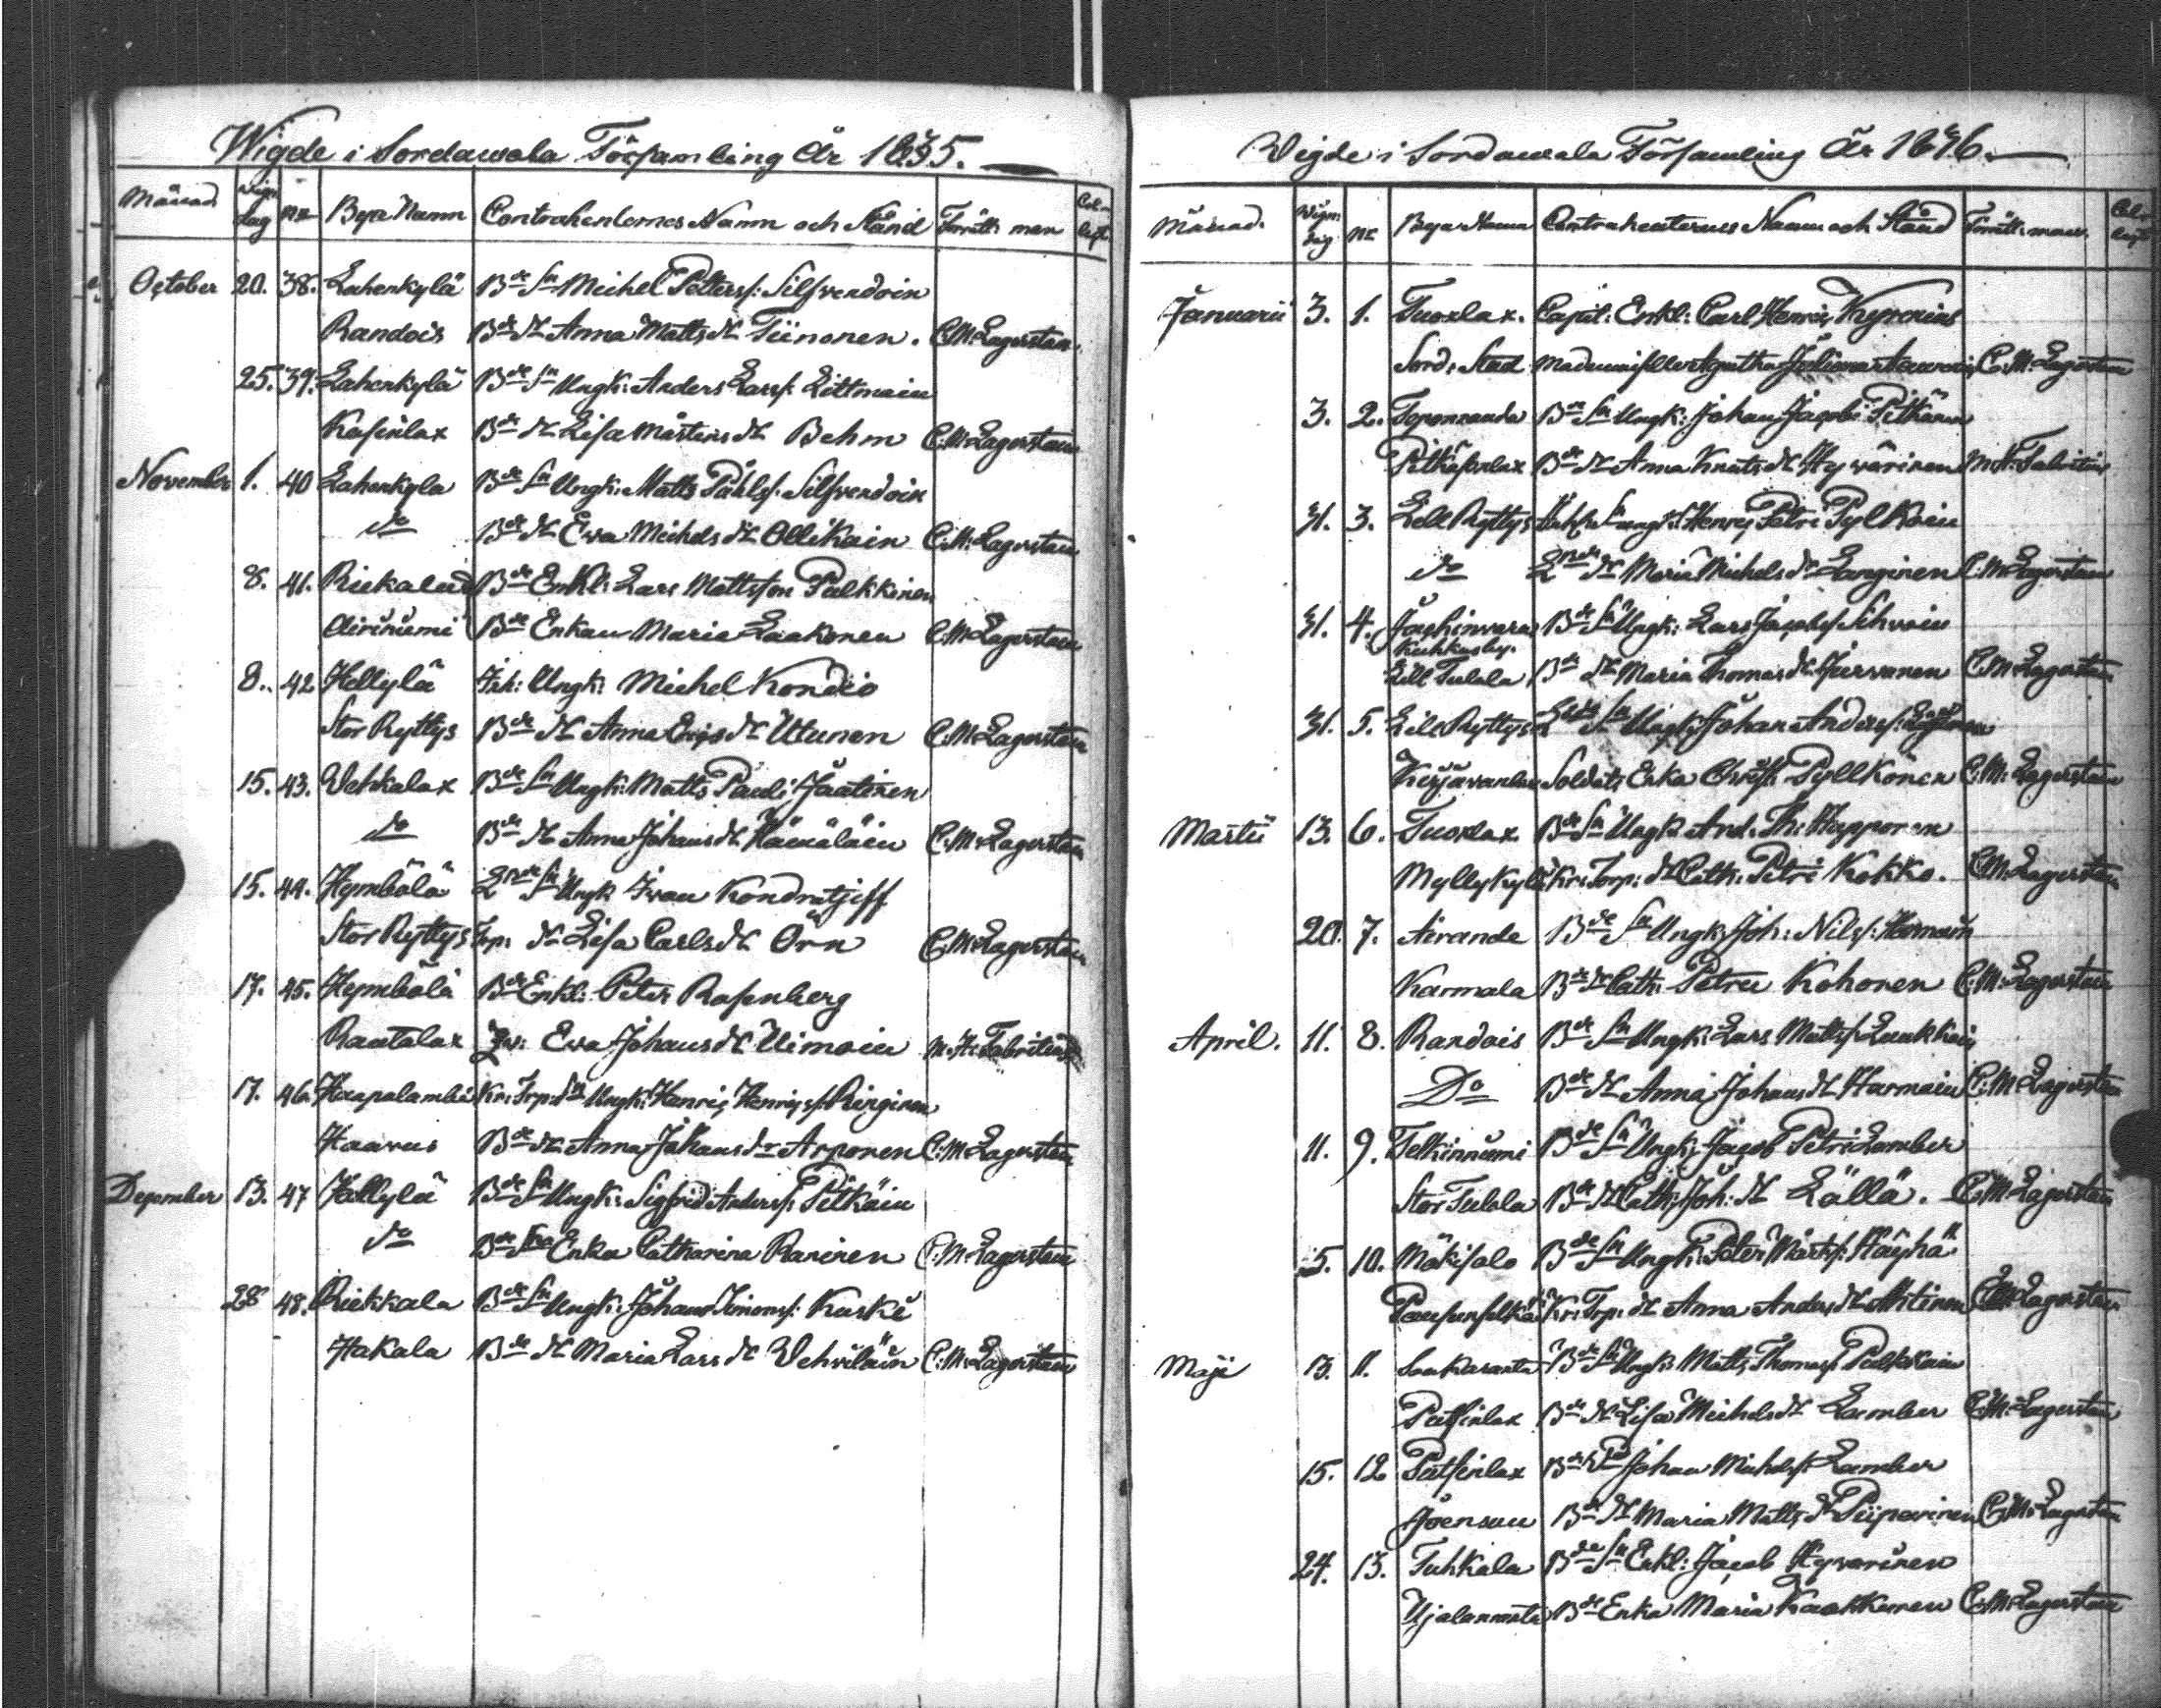 Wigde i Sordawala Församling År 1835.
Månad Wign. dag No Bya Namn Contrahenternes Namn och Stånd Förrätt: man
October 20. 38. Lahenkylä Bde Sn Michel Petterss: Silfvendoin
Randois Bde dr Anna Matts dr Tiinonen. C.M. Lagerstam
25. 39. Lahenkylä Bde Sn Ungk: Anders Larss. Littmain
Kasinlax Bde dr Lisa Mårtens dr Behm C.M. Lagerstam
November 1. 40 Lahenkyla Bde Sn Ungk: Matts Påhlss. Silfvendoin
do Bde dr Ewa Michels dr Ollikain C.M. Lagerstam
8. 41. Bde Enkl: Lars Mattsson Pulkkinen
Bde Enkan Maria Laakonen C.M. Lagerstam
8. 42 Hellylä Ungk: Michel Kondio
Stor Ryttys Bde dr Anna Erigs dr Utunen C.M. Lagerstam
15. 43. Uehkalax Bde Sn Ungk: Matts Pauli Jäätinen
do Bde dr Anna Johans dr Hämäläin C.M. Lagerstam
15. 44. Hymbölä Sn Ungk Iwan Kondratjeff
Stor Ryttys Trp: dr Lisa Carls dr Örn C.M. Lagerstam
17. 45. Hymbölä Bde Enkl: Peter Rosenberg
Rautalax Ewa Johans dr Uimain M.H. Fabritius
17. 46. Haapalambi Kr: Trp: Sn Ungk: Henric Henricss. Ringinen
Haavus Bde dr Anna Johans dr Arponen C.M. Lagerstam
December 13. 47 Hellylä Bde Sn Ungk: Sigfrid Anderss: Pitkäin
do Bde Enka Catharina Raninen C.M. Lagerstam
28 48. Riekkala Bde Sn Ungk: Johan Simonss: Kuski
Hakala Bde dr Maria Lars dr Wehviläin C.M. Lagerstam
Wigde i Sordawala Församling År
Månad. Wign. dag No Bya Namn Contrahenternes Namn och Stånd Förrätt: man.
Januarii 3. 1. Tuoxlax. Capit: Enkl: Carl Henric
Sord: Stad C.M. Lagerstam
3. 2. Bde Sn Ungk: Johan Jacobi Pitkänen
Bde dr Anna Knuts dr Hyvärinen M.H. Fabritius
31. 3. Lill Ryttys Henric Petri Pylkäin
do dr Maria Michels dr Langinen C.M. Lagerstam
31. 4. Bde Sn Ungk: Lars Jacobs Sihvoin
Lill Tulola Bde dr Maria Thomas dr C.M. Lagerstam
31. 5. Lill Ryttys Sn Ungk: Johan Anderss.
Soldats Enka Christ: Pyllkönen C.M. Lagerstam
Martii 13. 6. Tuoxlax Bde Sn Ungk And. Th: Happonen
Myllykylä Kr: Torp: dr Cath: Petri Kokko. C.M. Lagerstam
20. 7. Airanda Bde Sn Ungk: Joh: Nilss:
Karmala Bde dr Cath: Petri Kohonen C.M. Lagerstam
April. 11. 8. Randois Bde Sn Ungk: Lars Mattss.
Do Bde dr Anna Johans dr Harmain C.M. Lagerstam
11. 9. Telkinniemi Bde Sn Ungk: Jacob Petri Lamber
Stor Tulola Bde dr Cath: Joh: dr Lällä. C.M. Lagerstam
5. 10. Mäkisalo Bde Sn Ungk: Peter Märtss: Häyhä
Kr: Trp: dr Anna Anders dr C.M. Lagerstam
Maji 13. 11. Bde Sn Ungk: Matts Thomass. Pulkkain
Putsinlax Bde dr Lisa Michels dr Lamber C.M. Lagerstam
15. 12 Putsinlax Johan Michelss: Lamber
Joensuu Bde dr Maria Matts dr Piiparinen C.M. Lagerstam
24. 13. Tuhkala Bde Sn Enkl: Jacob Hyvarinen
Bde Enka Maria C.M. Lagerstam